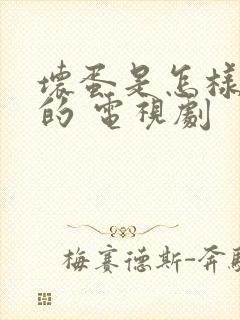 壞蛋是怎樣
的 電視劇
梅赛德斯-奔